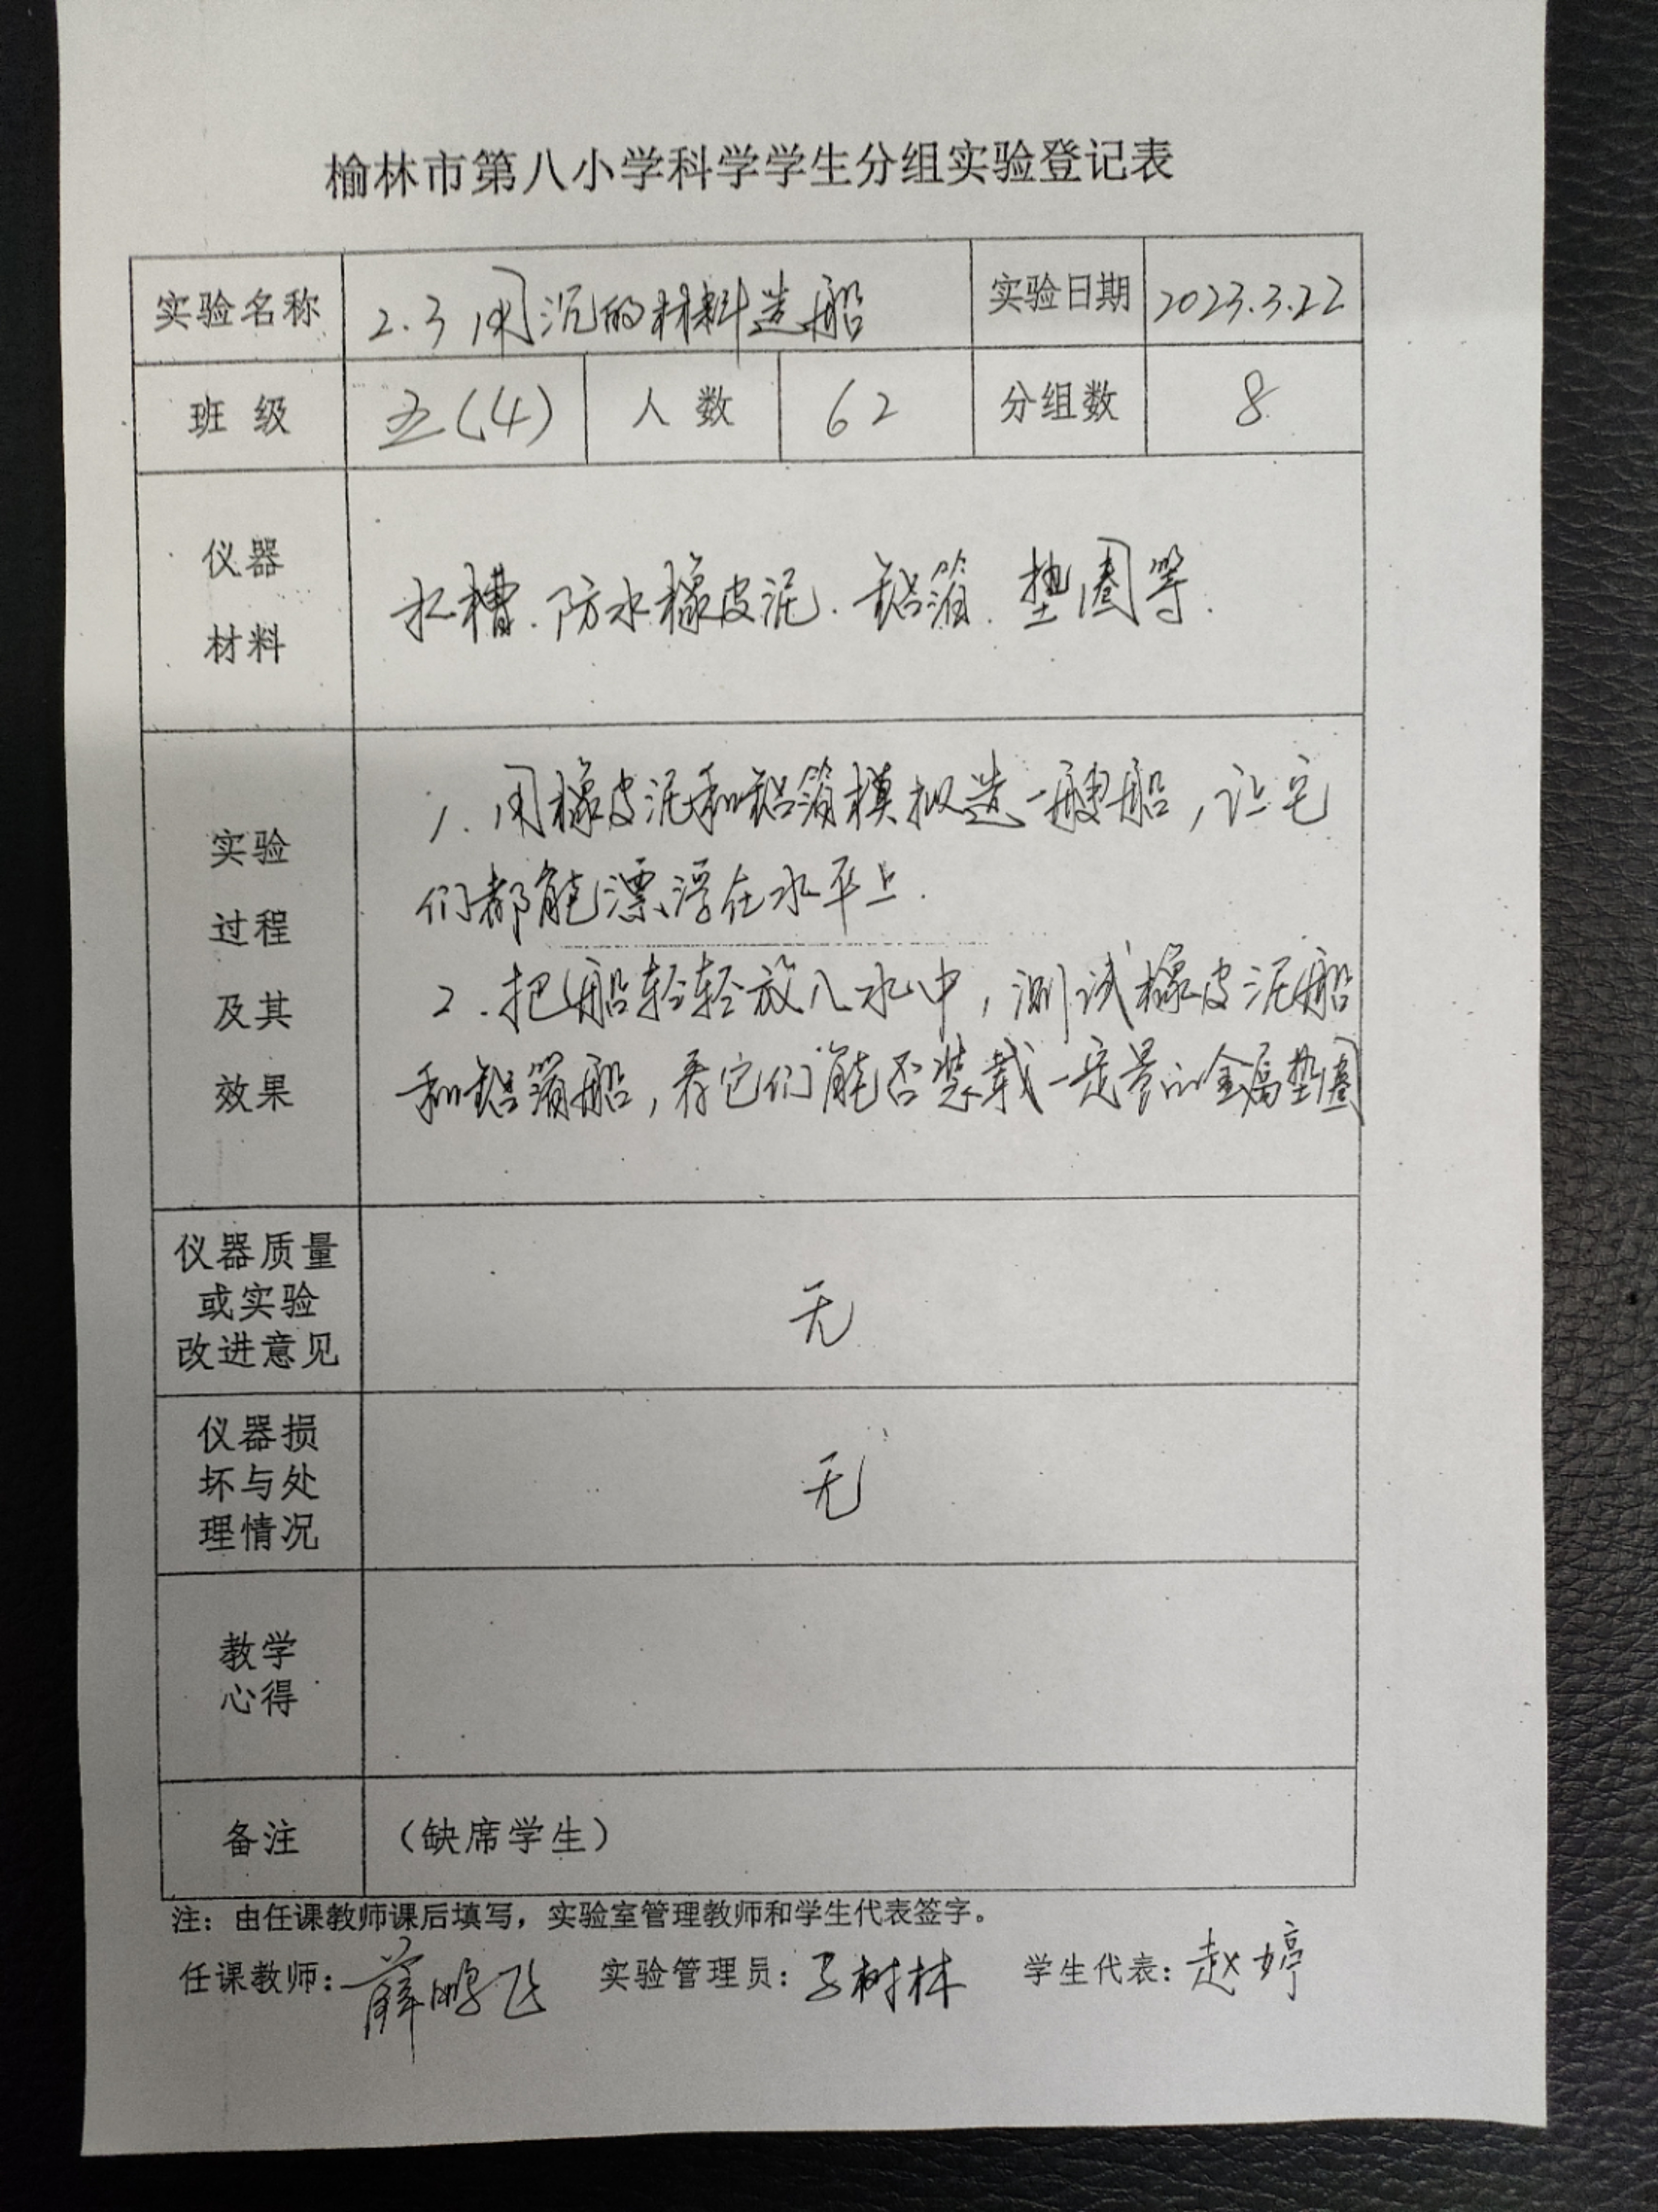 榆林市第八小学科学学生分组实验登记表
实验名称 2.3用沉的材料造船 实验日期 2023.3.22
班 级 五(4) 人 数 62 分组数 8
仪器
材料
水槽.防水橡皮泥.铝箔.垫圈等.
实验
过程
及其
效果
1.用橡皮泥和铝箔模拟造一艘船,让它
们都能漂浮在水平上.
2.把船轻轻放入水中,测试橡皮泥船
和铝箔船,看它们能否装载一定量的金属垫圈
仪器质量
或实验
改进意见
无
仪器损
坏与处
理情况
无
教学
心得
备注 (缺席学生)
注:由任课教师课后填写,实验室管理教师和学生代表签字。
任课教师:薛鹏飞 实验管理员:树林 学生代表:赵婷